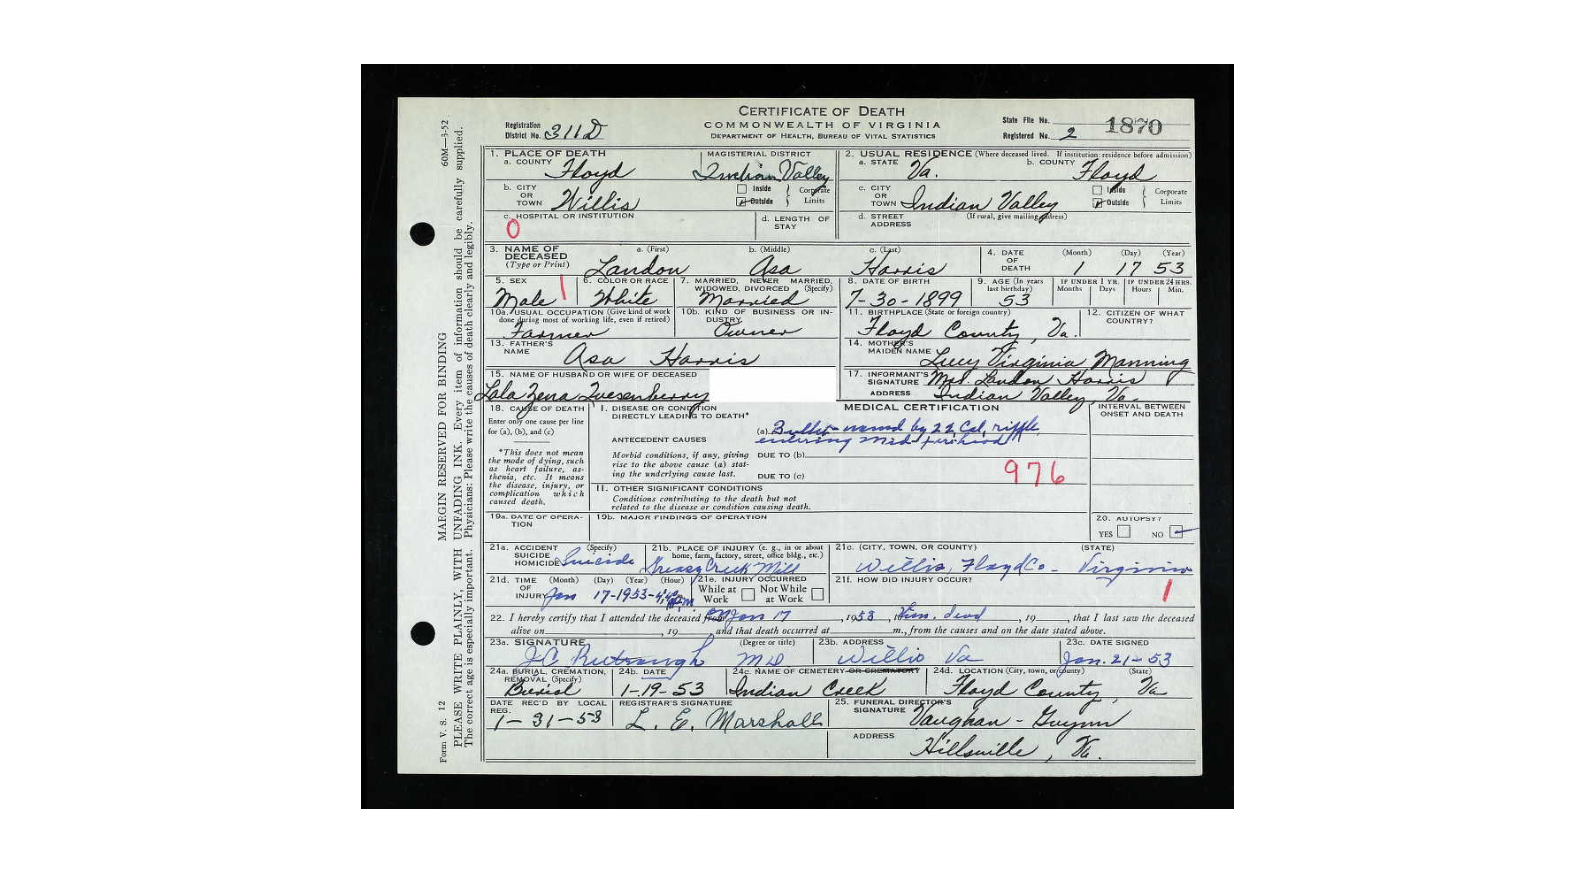 CERTIFICATE OF DEATH
COMMONWEALTH OF VIRGINIA
DEPARTMENT OF HEALTH, BUREAU OF VITAL STATISTICS
Registration District No. 311D
State File No. 1870
Registered No. 2
1. PLACE OF DEATH
a. COUNTY Floyd
MAGISTERIAL DISTRICT Indian Valley
b. CITY OR TOWN Willis
Inside Outside Corporate Limits
c. HOSPITAL OR INSTITUTION
0
d. LENGTH OF STAY
2. USUAL RESIDENCE (Where deceased lived. If institution: residence before admission)
a. STATE Va.
b. COUNTY Floyd
c. CITY OR TOWN Indian Valley
Inside Outside Corporate Limits
d. STREET ADDRESS (If rural, give mailing address)
3. NAME OF DECEASED (Type or Print)
a. (First) Landon b. (Middle) Asa c. (Last) Harris
4. DATE OF DEATH (Month) 1 (Day) 17 (Year) 53
5. SEX Male
6. COLOR OR RACE White
7. MARRIED, NEVER MARRIED, WIDOWED, DIVORCED (Specify) Married
8. DATE OF BIRTH 7-30-1899
9. AGE (In years last birthday) 53
IF UNDER 1 YR. Months Days
IF UNDER 24 HRS. Hours Min.
10a. USUAL OCCUPATION (Give kind of work done during most of working life, even if retired) Farmer
10b. KIND OF BUSINESS OR INDUSTRY Owner
11. BIRTHPLACE (State or foreign country) Floyd County, Va.
12. CITIZEN OF WHAT COUNTRY?
13. FATHER'S NAME Asa Harris
14. MOTHER'S MAIDEN NAME Lucy Virginia Manning
15. NAME OF HUSBAND OR WIFE OF DECEASED
Lola Zena Quesenberry
17. INFORMANT'S SIGNATURE Mrs. Landon Harris
ADDRESS Indian Valley, Va.
18. CAUSE OF DEATH
Enter only one cause per line for (a), (b), and (c)
*This does not mean the mode of dying, such as heart failure, asthenia, etc. It means the disease, injury, or complication which caused death.
MEDICAL CERTIFICATION
INTERVAL BETWEEN ONSET AND DEATH
I. DISEASE OR CONDITION DIRECTLY LEADING TO DEATH*
(a) Bullet wound by 22 Cal. riffle
entering
ANTECEDENT CAUSES
Morbid conditions, if any, giving rise to the above cause (a) stating the underlying cause last.
DUE TO (b)
DUE TO (c)
976
II. OTHER SIGNIFICANT CONDITIONS
Conditions contributing to the death but not related to the disease or condition causing death.
19a. DATE OF OPERATION
19b. MAJOR FINDINGS OF OPERATION
20. AUTOPSY?
YES NO
21a. ACCIDENT SUICIDE HOMICIDE (Specify) Suicide
21b. PLACE OF INJURY (e. g., in or about home, farm, factory, street, office bldg., etc.) Greasy Creek Mill
21c. (CITY, TOWN, OR COUNTY) (STATE)
Willis, Floyd Co- Virginia
21d. TIME OF INJURY (Month) (Day) (Year) (Hour) Jan 17-1953
21e. INJURY OCCURRED
While at Work Not While at Work
21f. HOW DID INJURY OCCUR?
22. I hereby certify that I attended the deceased Jan 17, 1953, dead, 19, that I last saw the deceased
alive on, 19 and that death occurred at m., from the causes and on the date stated above.
23a. SIGNATURE (Degree or title) MD
23b. ADDRESS Willis Va
23c. DATE SIGNED Jan. 21-53
24a. BURIAL, CREMATION, REMOVAL (Specify) Burial
24b. DATE 1-19-53
24c. NAME OF CEMETERY OR CREMATORY Indian Creek
24d. LOCATION (City, town, or county) (State) Floyd County, Va
DATE REC'D BY LOCAL REG. 1-31-53
REGISTRAR'S SIGNATURE L. E. Marshall
25. FUNERAL DIRECTOR'S SIGNATURE Vaughan-Guynn
ADDRESS Hillsville, Va.
Form V. S. 12
60M—3-52
MARGIN RESERVED FOR BINDING
PLEASE WRITE PLAINLY, WITH UNFADING INK. Every item of information should be carefully supplied.
The correct age is especially important. Physicians: Please write the causes of death clearly and legibly.